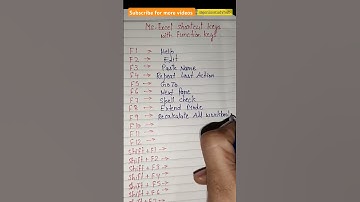 Subscribe for more videos
Ms-Excel shortcut keys
with Function keys
F1 → Help
F2 → Edit
F3 → Paste Name
F4 → Repeat Last Action
F5 → GoTo
F6 → Next Pane
F7 → Spell check
F8 → Extend Mode
F9 → Recalculate All Workbook
F10 →
F11 →
F12 →
Shift + F1 →
Shift + F2 →
Shift + F3 →
Shift + F4 →
Shift + F5 →
Shift + F6 →
Shift + F7 →